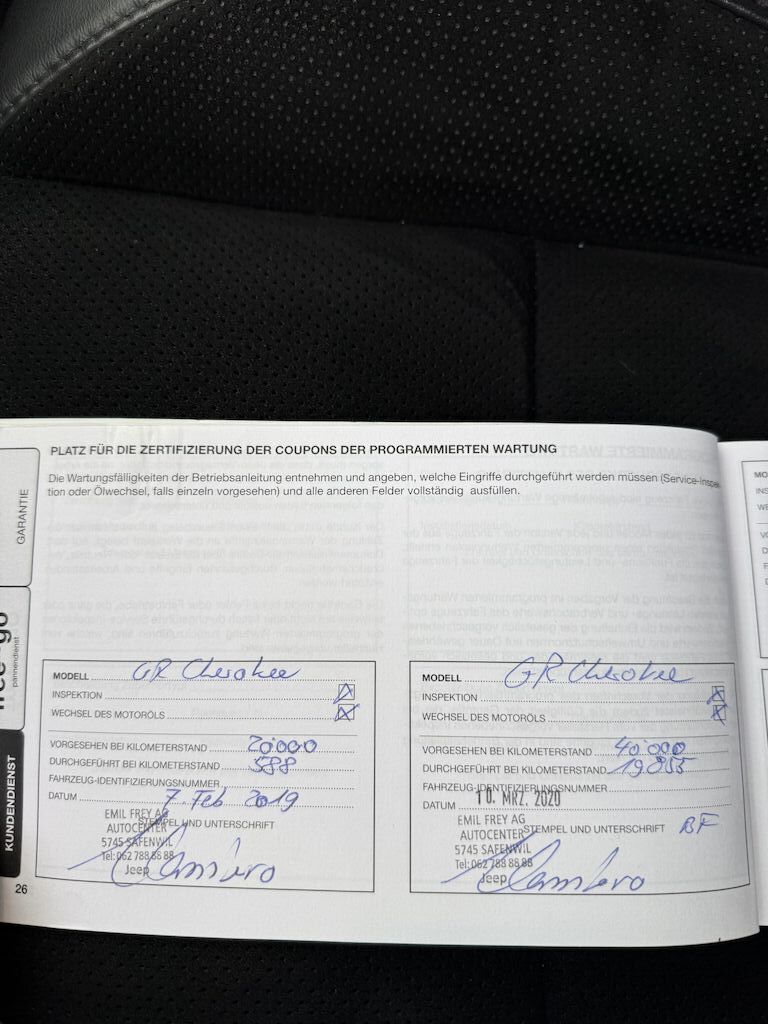 PLATZ FÜR DIE ZERTIFIZIERUNG DER COUPONS DER PROGRAMMIERTEN WARTUNG
Die Wartungsfälligkeiten der Betriebsanleitung entnehmen und angeben, welche Eingriffe durchgeführt werden müssen (Service-Inspek-
tion oder Ölwechsel, falls einzeln vorgesehen) und alle anderen Felder vollständig ausfüllen.
GARANTIE
pannendienst
KUNDENDIENST
26
MODELL GR Cherokee
INSPEKTION
WECHSEL DES MOTORÖLS
VORGESEHEN BEI KILOMETERSTAND 20'000
DURCHGEFÜHRT BEI KILOMETERSTAND 588
FAHRZEUG-IDENTIFIZIERUNGSNUMMER
DATUM 7. Feb 2019
STEMPEL UND UNTERSCHRIFT
EMIL FREY AG
AUTOCENTER
5745 SAFENWIL
Tel: 062 788 88 88
Jeep
MODELL GR Cherokee
INSPEKTION
WECHSEL DES MOTORÖLS
VORGESEHEN BEI KILOMETERSTAND 40'000
DURCHGEFÜHRT BEI KILOMETERSTAND 19'855
FAHRZEUG-IDENTIFIZIERUNGSNUMMER
DATUM 10. MRZ. 2020
STEMPEL UND UNTERSCHRIFT BF
EMIL FREY AG
AUTOCENTER
5745 SAFENWIL
Tel: 062 788 88 88
Jeep